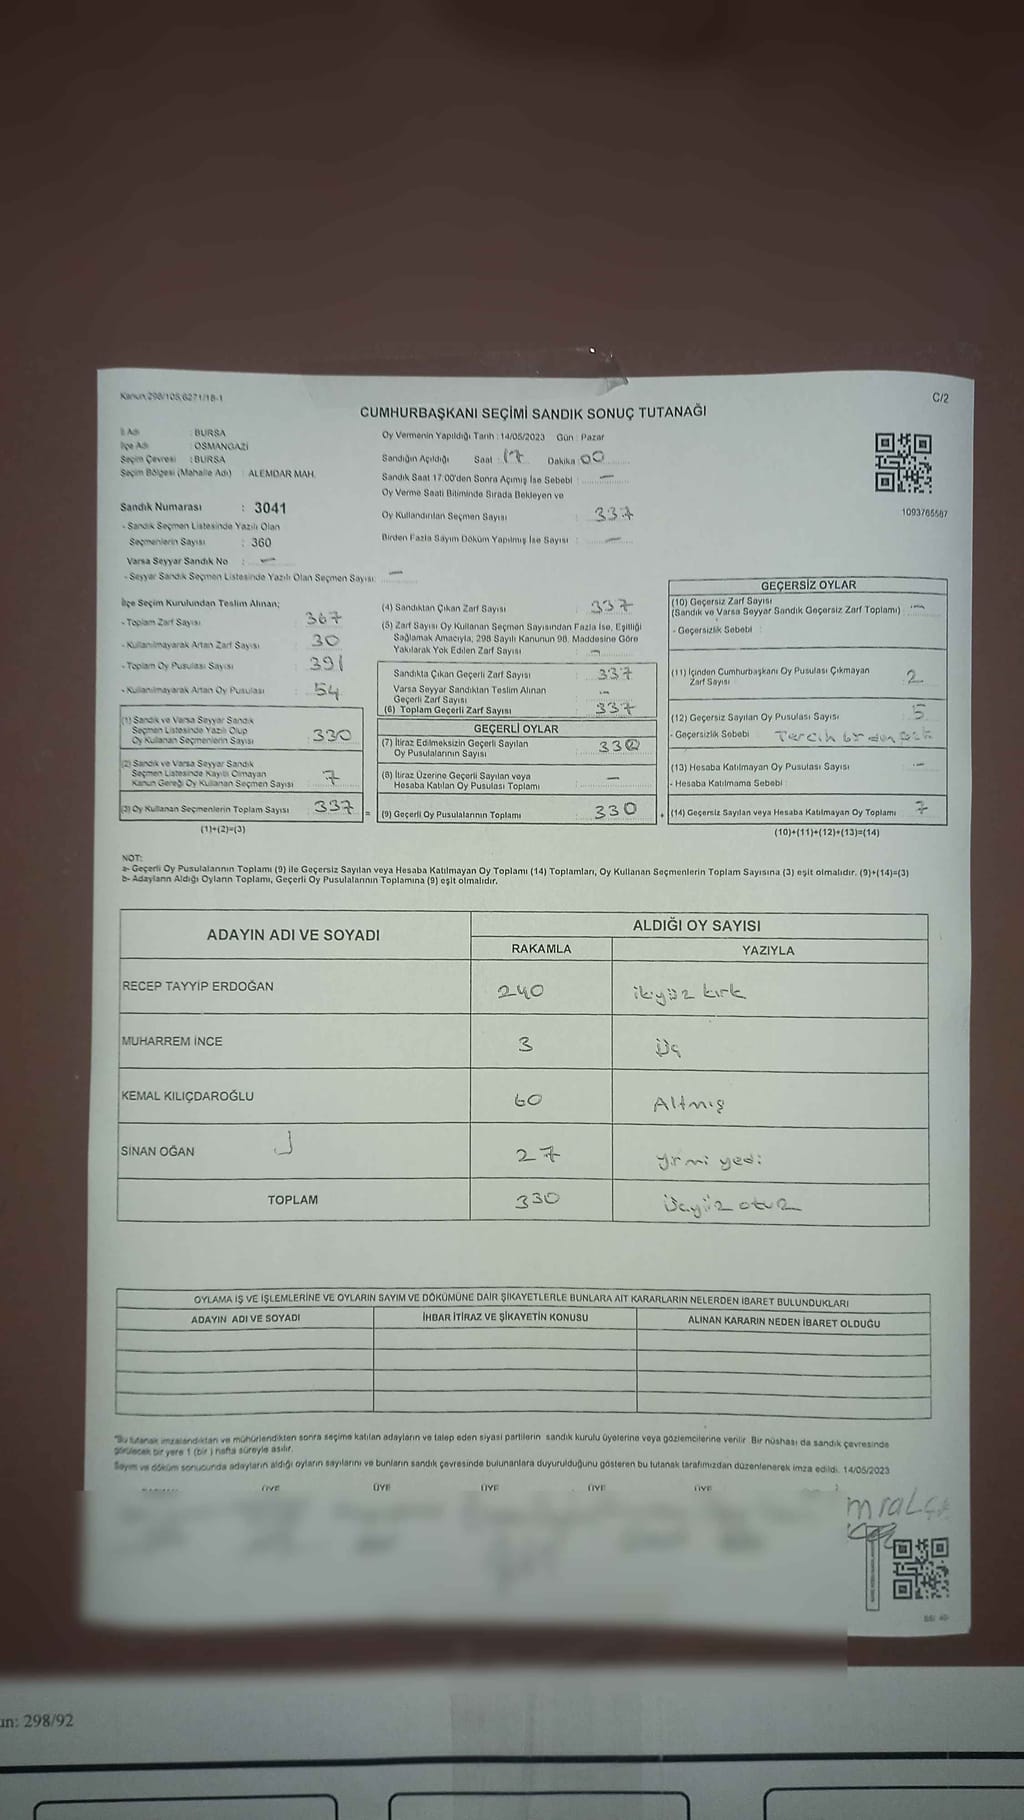 Kanun,298/105,6271/18-1
C/2
CUMHURBAŞKANI SEÇİMİ SANDIK SONUÇ TUTANAĞI
İl Adı : BURSA
İlçe Adı : OSMANGAZİ
Seçim Çevresi : BURSA
Seçim Bölgesi (Mahalle Adı) : ALEMDAR MAH.
Oy Vermenin Yapıldığı Tarih : 14/05/2023 Gün : Pazar
Sandığın Açıldığı Saat : 17 Dakika : 00
Sandık Saat 17:00'den Sonra Açımış İse Sebebi : —
Oy Verme Saati Bitiminde Sırada Bekleyen ve
Oy Kullandırılan Seçmen Sayısı : 337
Birden Fazla Sayım Döküm Yapılmış İse Sayısı : —
1093765587
Sandık Numarası : 3041
- Sandık Seçmen Listesinde Yazılı Olan
Seçmenlerin Sayısı : 360
Varsa Seyyar Sandık No : —
- Seyyar Sandık Seçmen Listesinde Yazılı Olan Seçmen Sayısı: —
İlçe Seçim Kurulundan Teslim Alınan;
- Toplam Zarf Sayısı : 367
- Kullanılmayarak Artan Zarf Sayısı : 30
- Toplam Oy Pusulası Sayısı : 391
- Kullanılmayarak Artan Oy Pusulası : 54
(1) Sandık ve Varsa Seyyar Sandık
Seçmen Listesinde Yazılı Olup
Oy Kullanan Seçmenlerin Sayısı : 330
(2) Sandık ve Varsa Seyyar Sandık
Seçmen Listesinde Kayıtlı Olmayan
Kanun Gereği Oy Kullanan Seçmen Sayısı : 7
(3) Oy Kullanan Seçmenlerin Toplam Sayısı : 337 =
(1)+(2)=(3)
(4) Sandıktan Çıkan Zarf Sayısı : 337
(5) Zarf Sayısı Oy Kullanan Seçmen Sayısından Fazla İse, Eşitliği
Sağlamak Amacıyla, 298 Sayılı Kanunun 98. Maddesine Göre
Yakılarak Yok Edilen Zarf Sayısı : —
Sandıkta Çıkan Geçerli Zarf Sayısı : 337
Varsa Seyyar Sandıktan Teslim Alınan
Geçerli Zarf Sayısı : —
(6) Toplam Geçerli Zarf Sayısı : 337
GEÇERLİ OYLAR
(7) İtiraz Edilmeksizin Geçerli Sayılan
Oy Pusulalarının Sayısı : 330
(8) İtiraz Üzerine Geçerli Sayılan veya
Hesaba Katılan Oy Pusulası Toplamı : —
(9) Geçerli Oy Pusulalarının Toplamı : 330 +
GEÇERSİZ OYLAR
(10) Geçersiz Zarf Sayısı
(Sandık ve Varsa Seyyar Sandık Geçersiz Zarf Toplamı) : —
- Geçersizlik Sebebi :
(11) İçinden Cumhurbaşkanı Oy Pusulası Çıkmayan
Zarf Sayısı : 2
(12) Geçersiz Sayılan Oy Pusulası Sayısı : 5
- Geçersizlik Sebebi : Tercih birden
(13) Hesaba Katılmayan Oy Pusulası Sayısı : —
- Hesaba Katılmama Sebebi :
(14) Geçersiz Sayılan veya Hesaba Katılmayan Oy Toplamı : 7
(10)+(11)+(12)+(13)=(14)
NOT:
a- Geçerli Oy Pusulalarının Toplamı (9) ile Geçersiz Sayılan veya Hesaba Katılmayan Oy Toplamı (14) Toplamları, Oy Kullanan Seçmenlerin Toplam Sayısına (3) eşit olmalıdır. (9)+(14)=(3)
b- Adayların Aldığı Oyların Toplamı, Geçerli Oy Pusulalarının Toplamına (9) eşit olmalıdır.
ADAYIN ADI VE SOYADI
ALDIĞI OY SAYISI
RAKAMLA YAZIYLA
RECEP TAYYİP ERDOĞAN 240 ikiyüz kırk
MUHARREM İNCE 3 Üç
KEMAL KILIÇDAROĞLU 60 Altmış
SİNAN OĞAN 27 yirmi yedi
TOPLAM 330 Üçyüz otuz
OYLAMA İŞ VE İŞLEMLERİNE VE OYLARIN SAYIM VE DÖKÜMÜNE DAİR ŞİKAYETLERLE BUNLARA AİT KARARLARIN NELERDEN İBARET BULUNDUKLARI
ADAYIN ADI VE SOYADI İHBAR İTİRAZ VE ŞİKAYETİN KONUSU ALINAN KARARIN NEDEN İBARET OLDUĞU
*Bu tutanak imzalandıktan ve mühürlendikten sonra seçime katılan adayların ve talep eden siyasi partilerin sandık kurulu üyelerine veya gözlemcilerine verilir. Bir nüshası da sandık çevresinde
görülecek bir yere 1 (bir ) hafta süreyle asılır.
Sayım ve döküm sonucunda adayların aldığı oyların sayılarını ve bunların sandık çevresinde bulunanlara duyurulduğunu gösteren bu tutanak tarafımızdan düzenlenerek imza edildi. 14/05/2023
ÜYE ÜYE ÜYE ÜYE ÜYE
un: 298/92